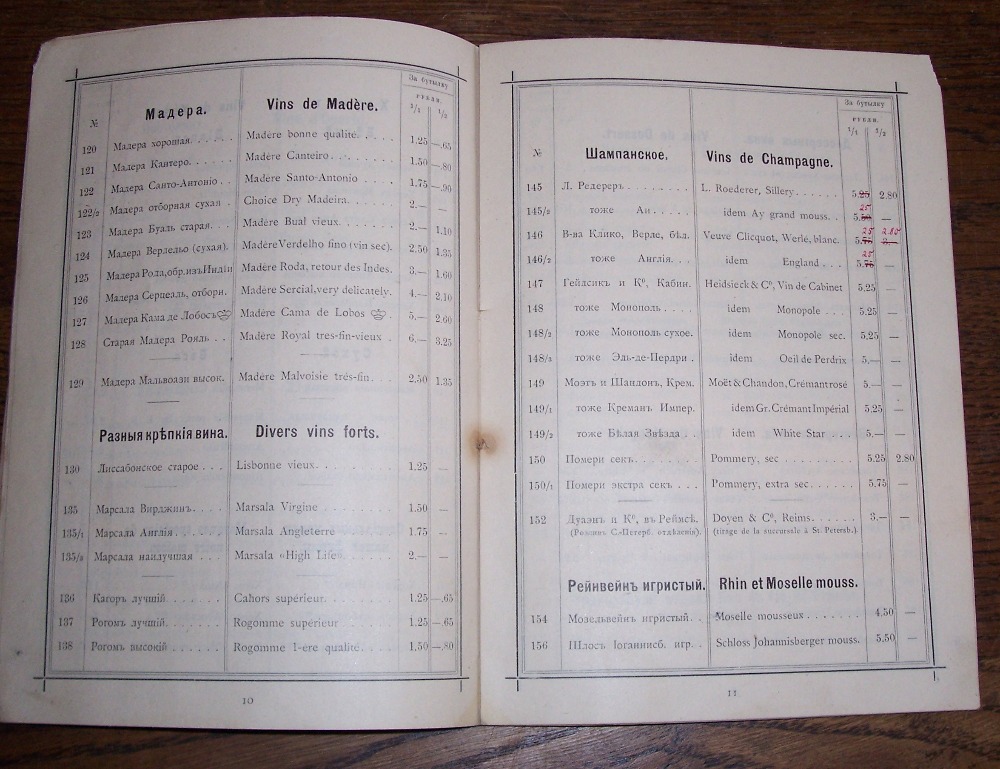 За бутылку
РУБЛИ.
№ Мадера. Vins de Madère. 1/1 1/2
120 Мадера хорошая. Madère bonne qualité. 1.25 —.65
121 Мадера Кантеро. Madère Canteiro. 1.50 —.80
122 Мадера Санто-Антоніо Madère Santo-Antonio 1.75 —.90
122/2 Мадера отборная сухая Choice Dry Madeira. 2.— —
123 Мадера Буаль старая. Madère Bual vieux. 2.— 1.10
124 Мадера Верлельо (сухая). Madère Verdelho fino (vin sec). 2.50 1.35
125 Мадера Рода, обр. изъ Индіи Madère Roda, retour des Indes. 3.— 1.60
126 Мадера Серцеаль, отборн. Madère Sercial, very delicately. 4.— 2.10
127 Мадера Кама де Лобосъ Madère Cama de Lobos 5.— 2.60
128 Старая Мадера Рояль Madère Royal tres-fin-vieux 6.— 3.25
129 Мадера Мальвоази высок. Madère Malvoisie trés-fin. 2.50 1.35
Разныя крѣпкія вина. Divers vins forts.
130 Лиссабонское старое Lisbonne vieux. 1.25 —
135 Марсала Вирджинъ. Marsala Virgine 1.50 —
135/1 Марсала Англія Marsala Angleterre 1.75 —
135/2 Марсала наилучшая Marsala «High Life». 2.— —
136 Кагоръ лучшій Cahors supérieur. 1.25 —.65
137 Рогомъ лучшій. Rogomme supérieur 1.25 —.65
138 Рогомъ высокій Rogomme 1-ere qualité. 1.50 —.80
10
За бутылку
РУБЛИ.
1/1 1/2
№ Шампанское. Vins de Champagne.
145 Л. Редереръ. L. Roederer, Sillery. 5.25 2.80
25
145/2 тоже Аи. idem Ay grand mouss. 5.50 —
25 2.80
146 В-ва Клико, Верле, бѣл. Veuve Clicquot, Werlé, blanc. 5.75 3.—
25
146/2 тоже Англія. idem England 5.75 —
147 Гейдсикъ и Ко, Кабин. Heidsieck & Co, Vin de Cabinet 5.25 —
148 тоже Монополь idem Monopole 5.25 —
148/2 тоже Монополь сухое. idem Monopole sec. 5.25 —
148/3 тоже Эль-де-Пердри idem Oeil de Perdrix 5.— —
149 Моэтъ и Шандонъ, Крем. Moët & Chandon, Crémant rosé 5.— —
149/1 тоже Креманъ Импер. idem Gr. Crémant Impérial 5.25 —
149/2 тоже Бѣлая Звѣзда idem White Star 5.— —
150 Помери секъ. Pommery, sec 5.25 2.80
150/1 Помери экстра секъ Pommery, extra sec 5.75 —
152 Дуаэнъ и Ко, въ Реймсѣ. Doyen & Co, Reims. 3.— —
(Розливъ С.-Петерб. отдѣленія). (tirage de la succursale à St. Petersb.)
Рейнвейнъ игристый. Rhin et Moselle mouss.
154 Мозельвейнъ игристый. Moselle mousseux 4.50 —
156 Шлосъ Іоганнисб. игр. Schloss Johannisberger mouss. 5.50 —
11